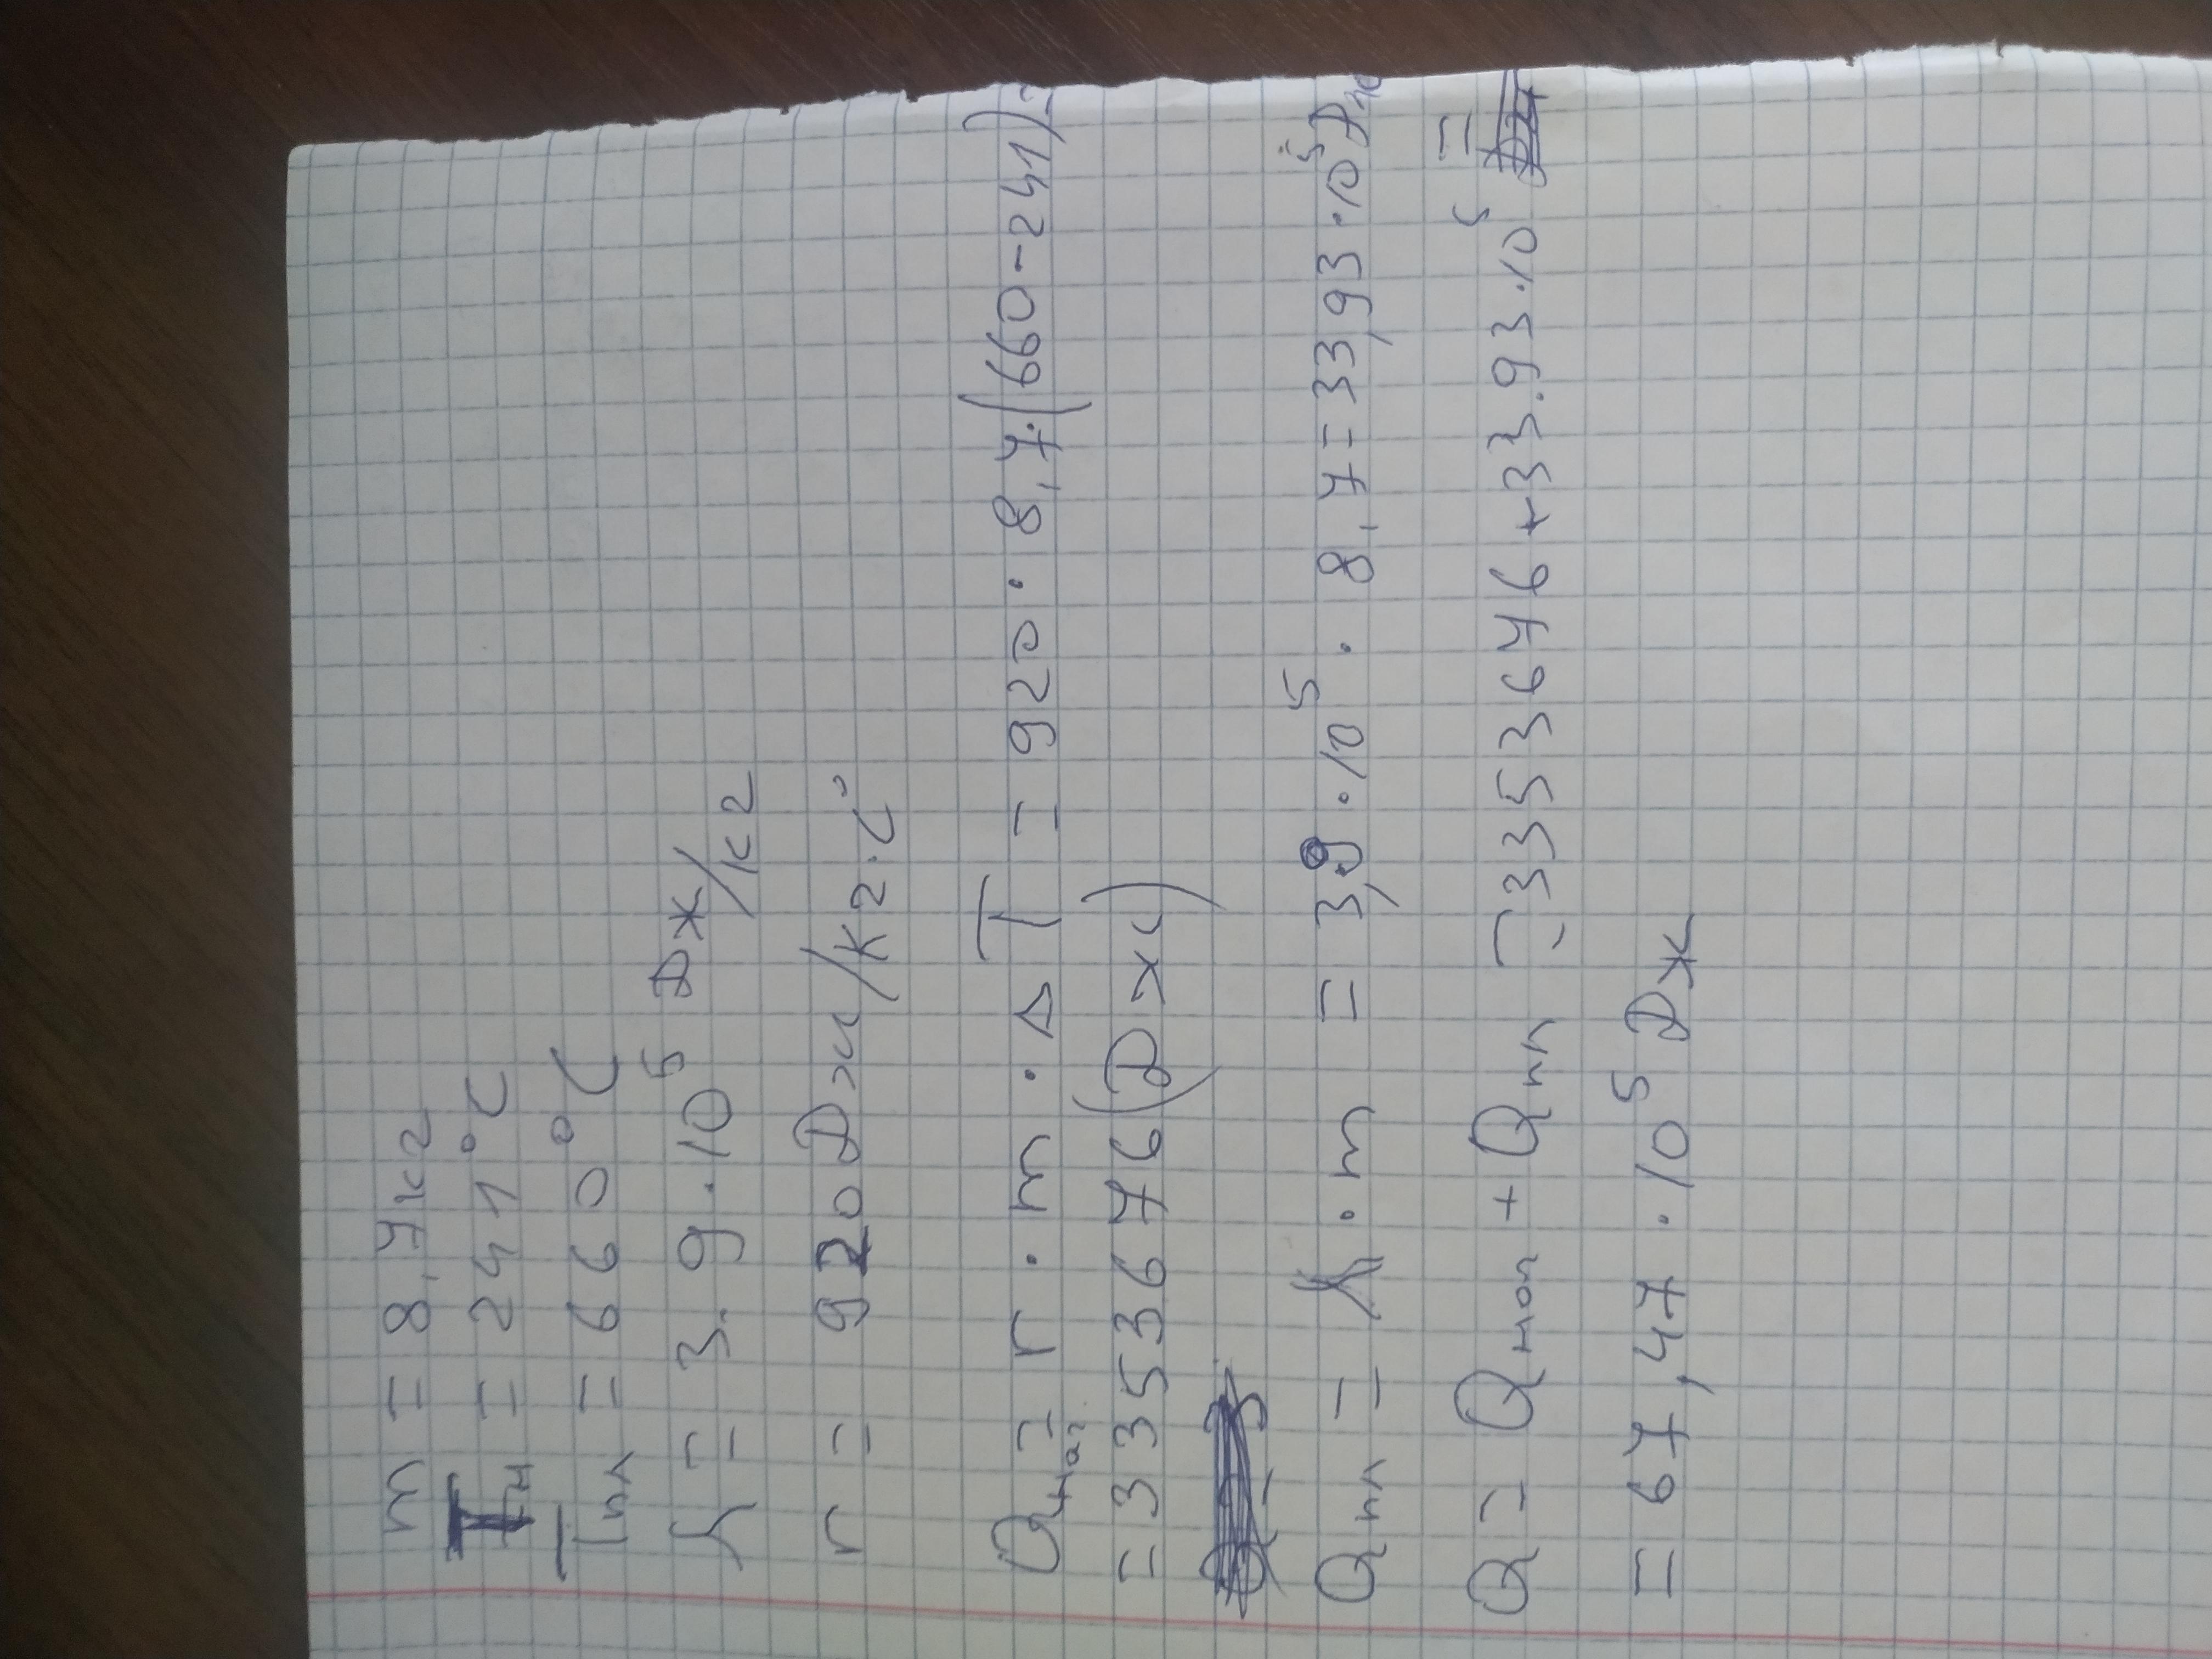 m = 8,7кг
Tн = 241°C
Tпл = 660°C
λ = 3.9·10⁵ Дж/кг
r = 920 Дж/кг·C°
Qнаг = r · m · ΔT = 920 · 8,7·(660-241)=
= 3353676(Дж)
Qпл = λ · m = 3,9·10⁵ · 8,7=33,93·10⁵Дж
Q = Qнаг + Qпл = 3353676+33.93·10⁵ =
= 67,47 · 10⁵ Дж